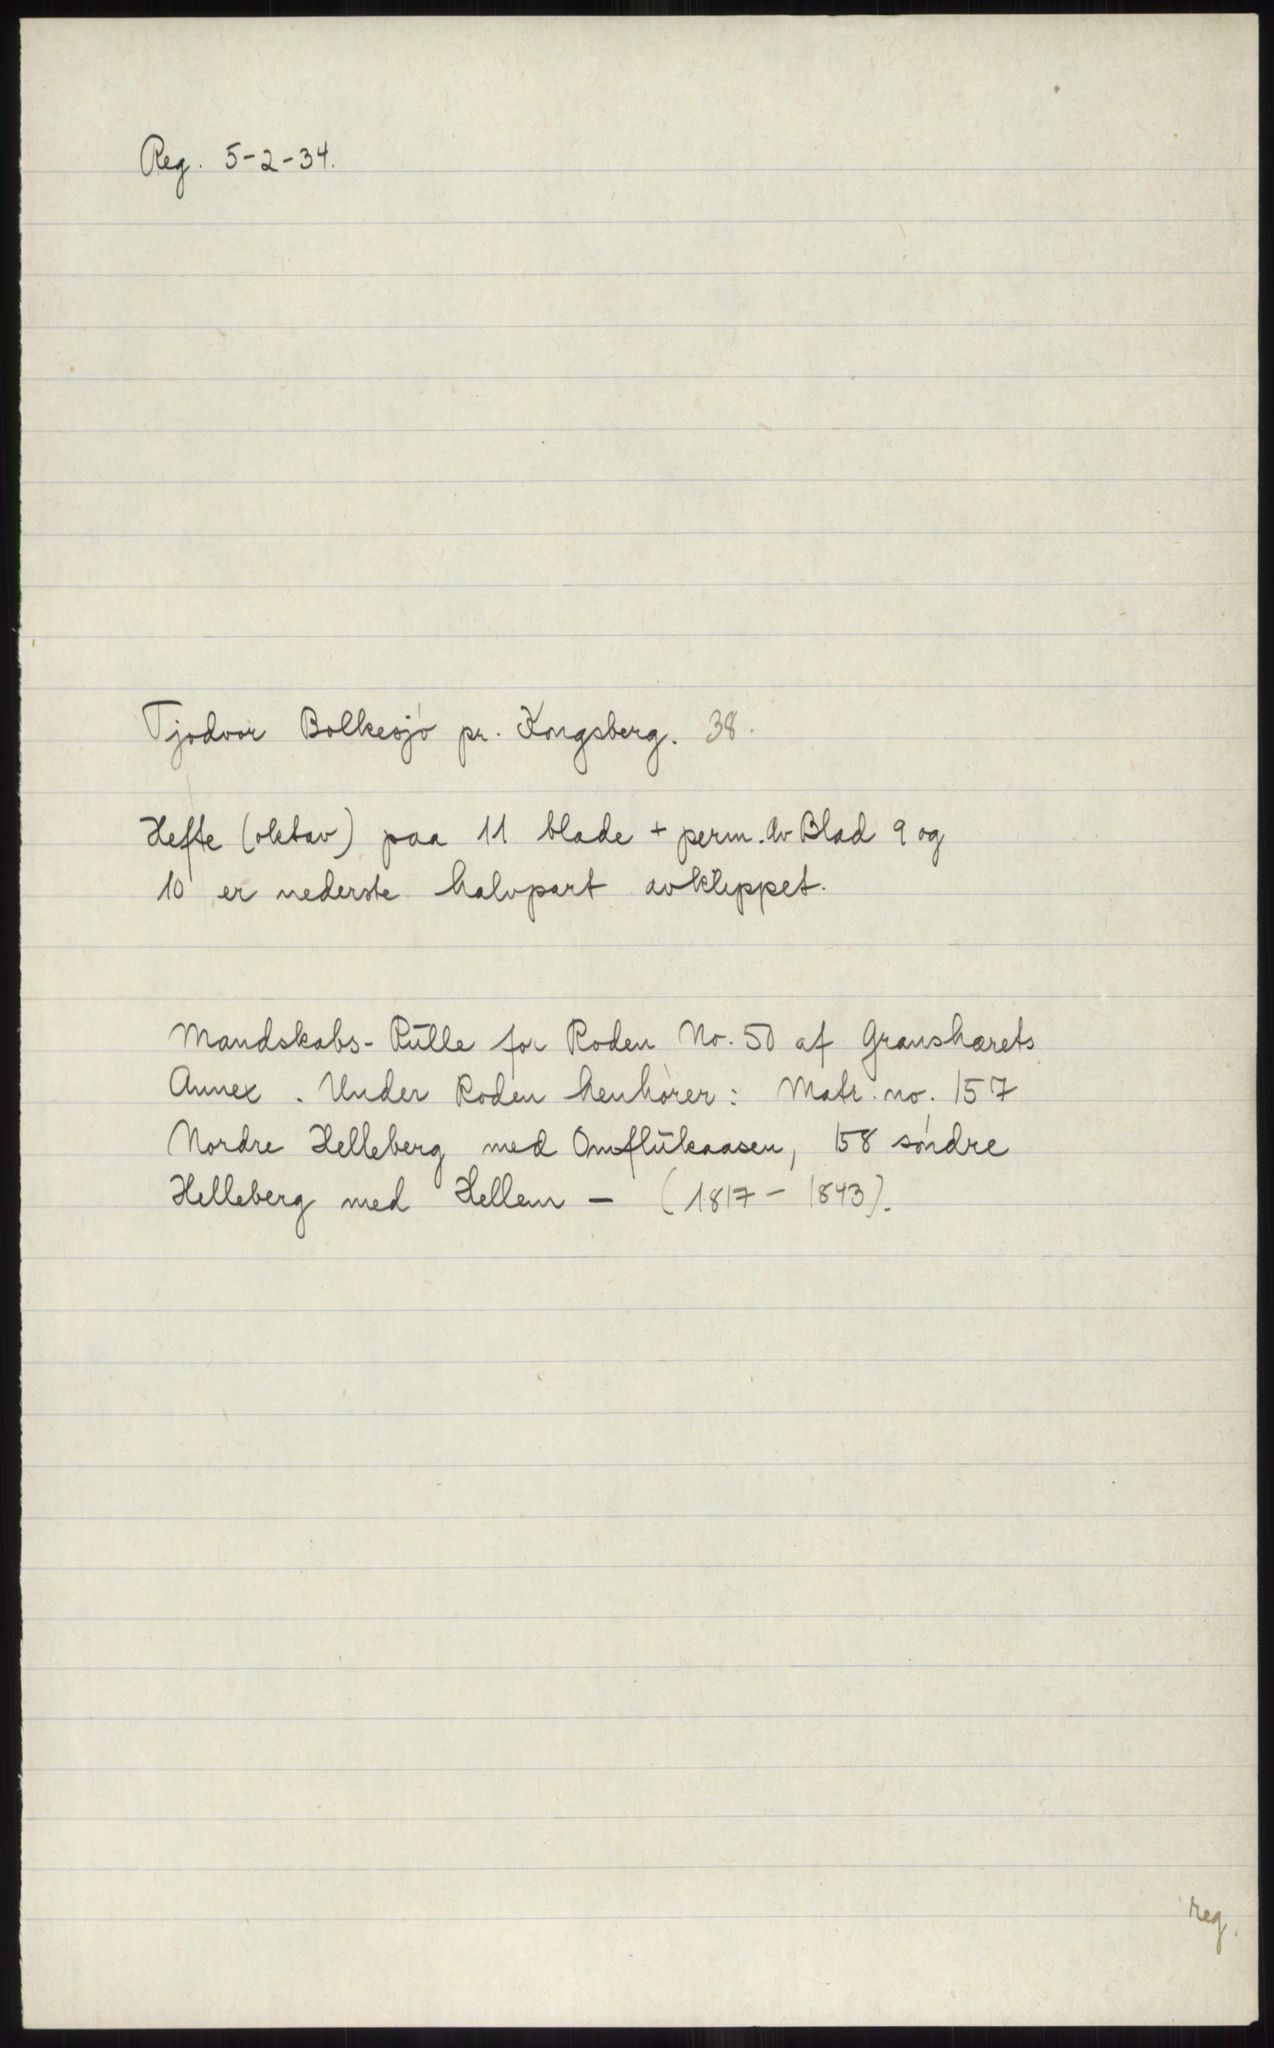 Reg. 5-2-34.
Tjodvor Bolkesjó pr. Kongsberg. 38.
Hefte (oktav) paa 11 blade + perm. Av Blad 9 og
10 er nederste halvpart avklippet.
Mandskabs-Rulle for Roden No. 50 af Gransharets
Annex. Under Roden henhórer: Matr. no. 157
Nordre Helleberg med Omflukaasen, 158 sóndre
Helleberg med Hellem - (1817 - 1843).
reg.